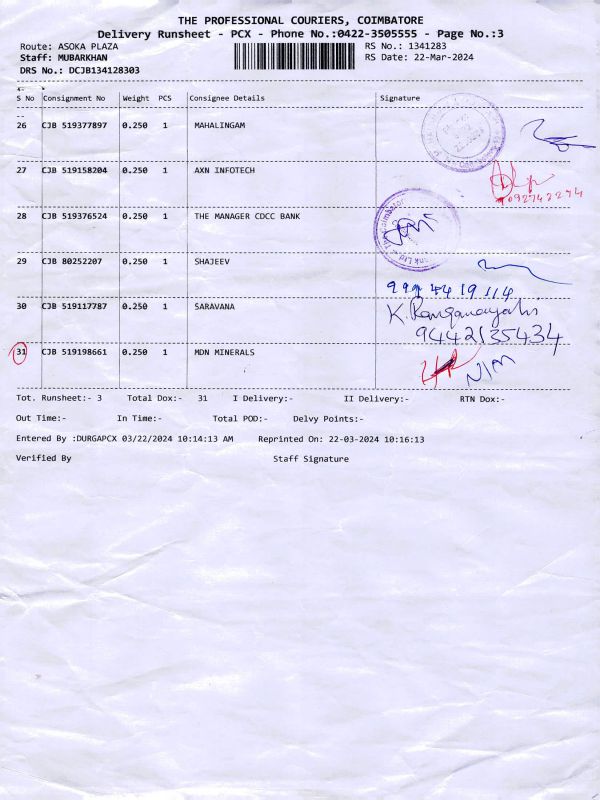 THE PROFESSIONAL COURIERS, COIMBATORE
Delivery Runsheet - PCX - Phone No.:0422-3505555 - Page No.:3
Route: ASOKA PLAZA RS No.: 1341283
Staff: MUBARKHAN RS Date: 22-Mar-2024
DRS No.: DCJB134128303
S No Consignment No Weight PCS Consignee Details Signature
26 CJB 519377897 0.250 1 MAHALINGAM
27 CJB 519158204 0.250 1 AXN INFOTECH
28 CJB 519376524 0.250 1 THE MANAGER CDCC BANK
29 CJB 80252207 0.250 1 SHAJEEV
30 CJB 519117787 0.250 1 SARAVANA
K. Ranganayaki
9442135434
31 CJB 519198661 0.250 1 MDN MINERALS
Tot. Runsheet:- 3 Total Dox:- 31 I Delivery:- II Delivery:- RTN Dox:-
Out Time:- In Time:- Total POD:- Delvy Points:-
Entered By :DURGAPCX 03/22/2024 10:14:13 AM Reprinted On: 22-03-2024 10:16:13
Verified By Staff Signature